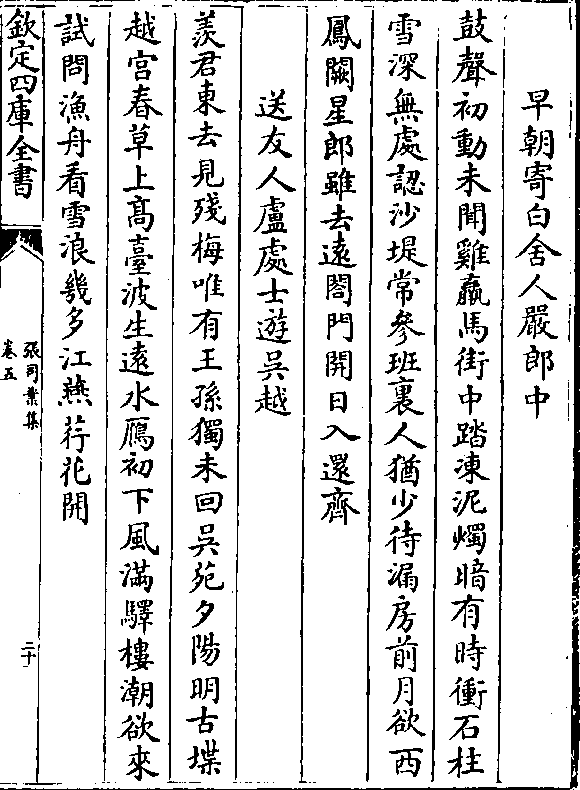 早朝寄白舍人嚴郎中
鼓聲初動未聞雞羸馬街中踏凍泥燭暗有時衝石柱
雪深無處認沙堤常參班裏人猶少待漏房前月欲西
鳳闕星郎雖去遠閤門開日入還齊
送友人盧處士遊吳越
羨君東去見殘梅唯有王孫獨未回吳苑夕陽明古堞
越宮春草上髙臺波生遠水鴈初下風滿驛樓潮欲來
試問漁舟看雪浪幾多江燕荇花開
欽定四庫全書
張司業集
卷五
二十